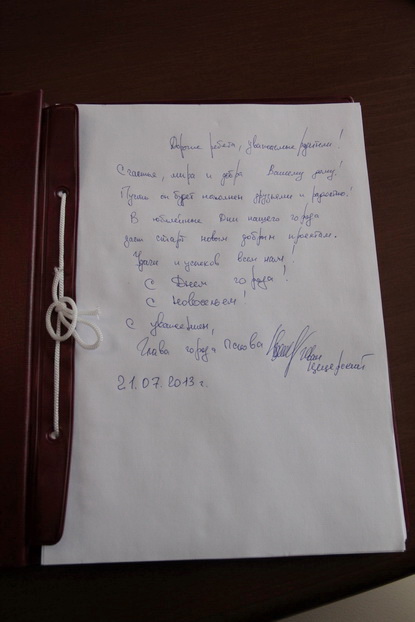 Дорогие ребята, уважаемые родители!
Счастья, мира и добра Вашему дому!
Пусть он будет наполнен друзьями и радостью!
В юбилейные дни нашего города
даём старт новым добрым проектам.
Удачи и успехов всем нам!
С Днем города!
С новосельем!
С уважением,
Глава города Пскова Иван
Цецерский
21.07.2013 г.